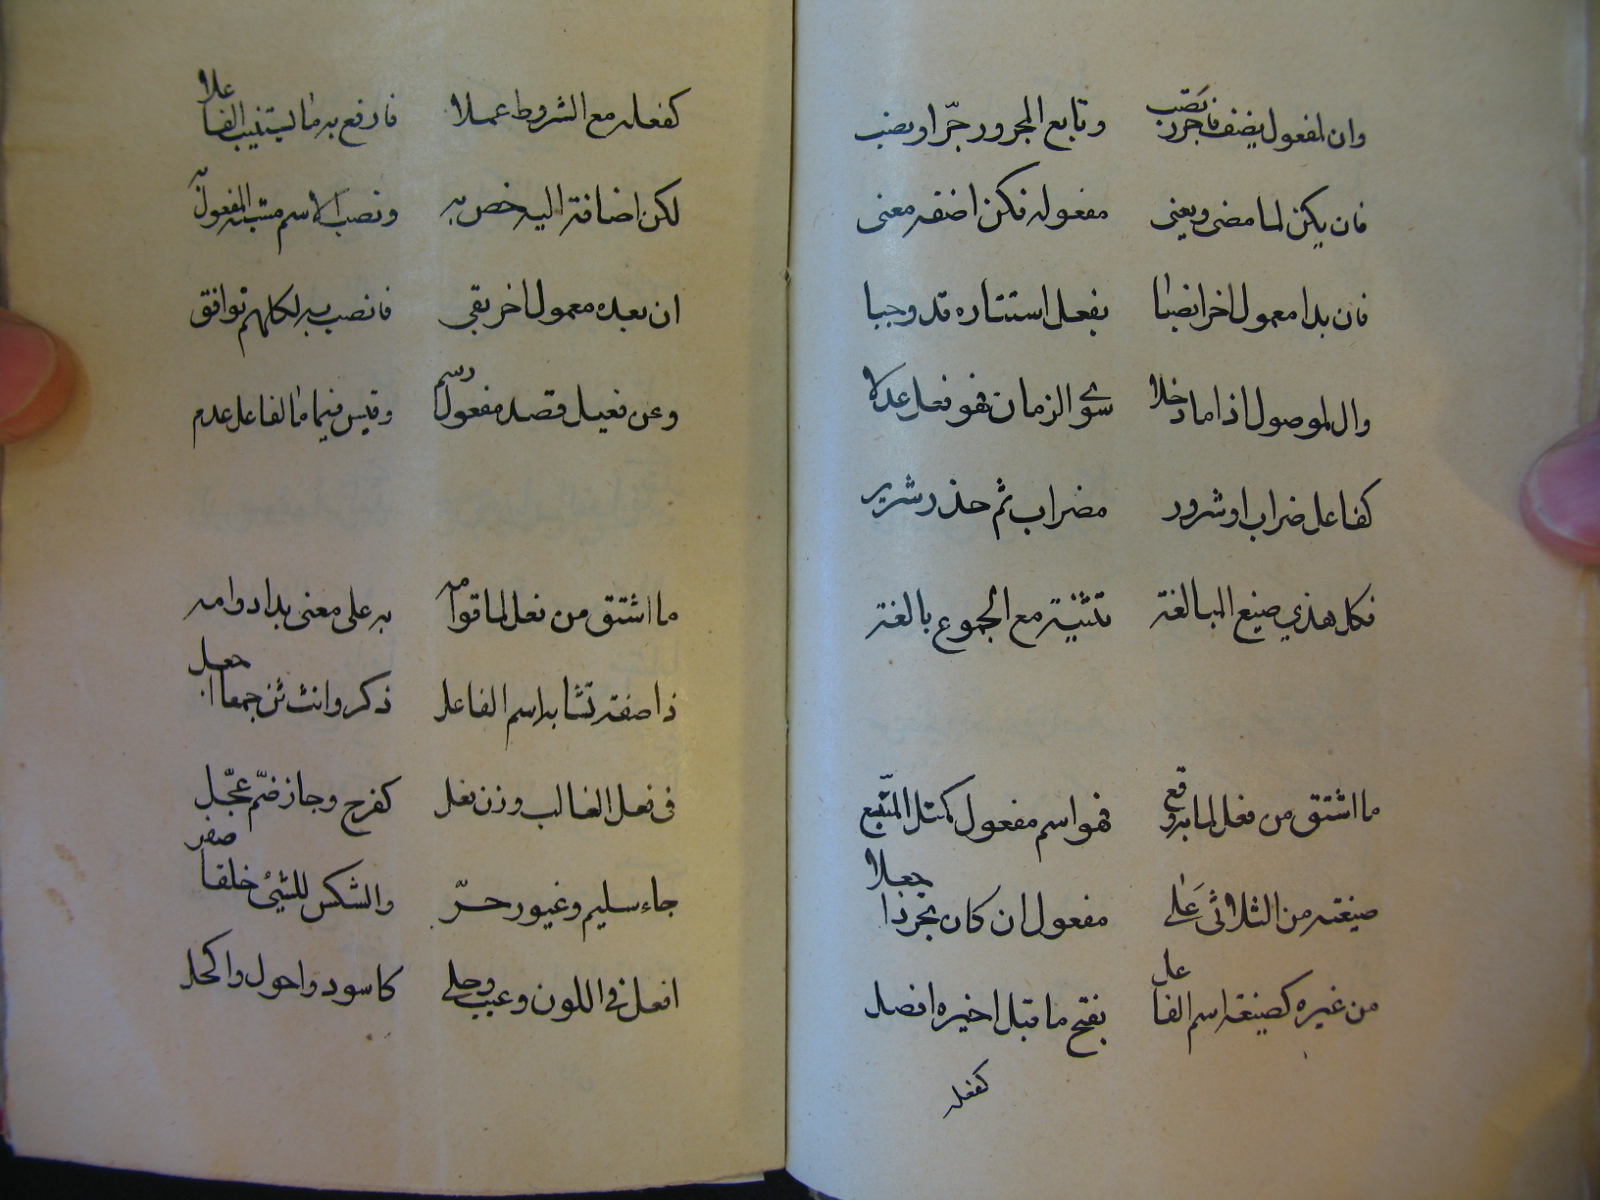 وان لمفعول يضف فاجرر نصب وتابع المجرور جرّ او نصب
فان يكن لما مضى ويعنى مفعوله فكن اضفه معنى
فان بدا معمول اخر انصبا بفعل استتاره قد وجبا
وال لموصول اذا ما دخلا سوى الزمان فهو فعل عدلا
كفاعل ضراب او شرور مضراب ثم حذر شرير
فكل هذي صيغ المبالغة تثنية مع الجموع بالغة
ما اشتق من فعل لما به وقع فهو اسم مفعول كمثل المتّبع
صيغته من الثلاثى على مفعول ان كان مجردا جعلا
من غيره كصيغة اسم الفاعل بفتح ما قبل اخيره افصل
كفعله
كفعله مع الشروط عملا فارفع به ما يستنيب الفاعلا
لكن اضافة اليه خص به ونصب الاسم مشبه المفعول به
ان بعده معمول اخر بقي فانصب به لكلهم توافق
وعن فعيل قصد مفعول رسم وقيس فيما ما لفاعل عدم
ما اشتق من فعل لما قوامه به على معنى بدا دوامه
ذا صفة تشابه اسم الفاعل ذكر وانث ثن جمعا اجعل
فى فعل الغالب وزن فعل كفرح وجاز ضمّ عجّل
جاء سليم وغيور حرّ والشكس للشيئ خلقا صفر
افعل فى اللون وعيب وحلى كاسود واحول واكحل